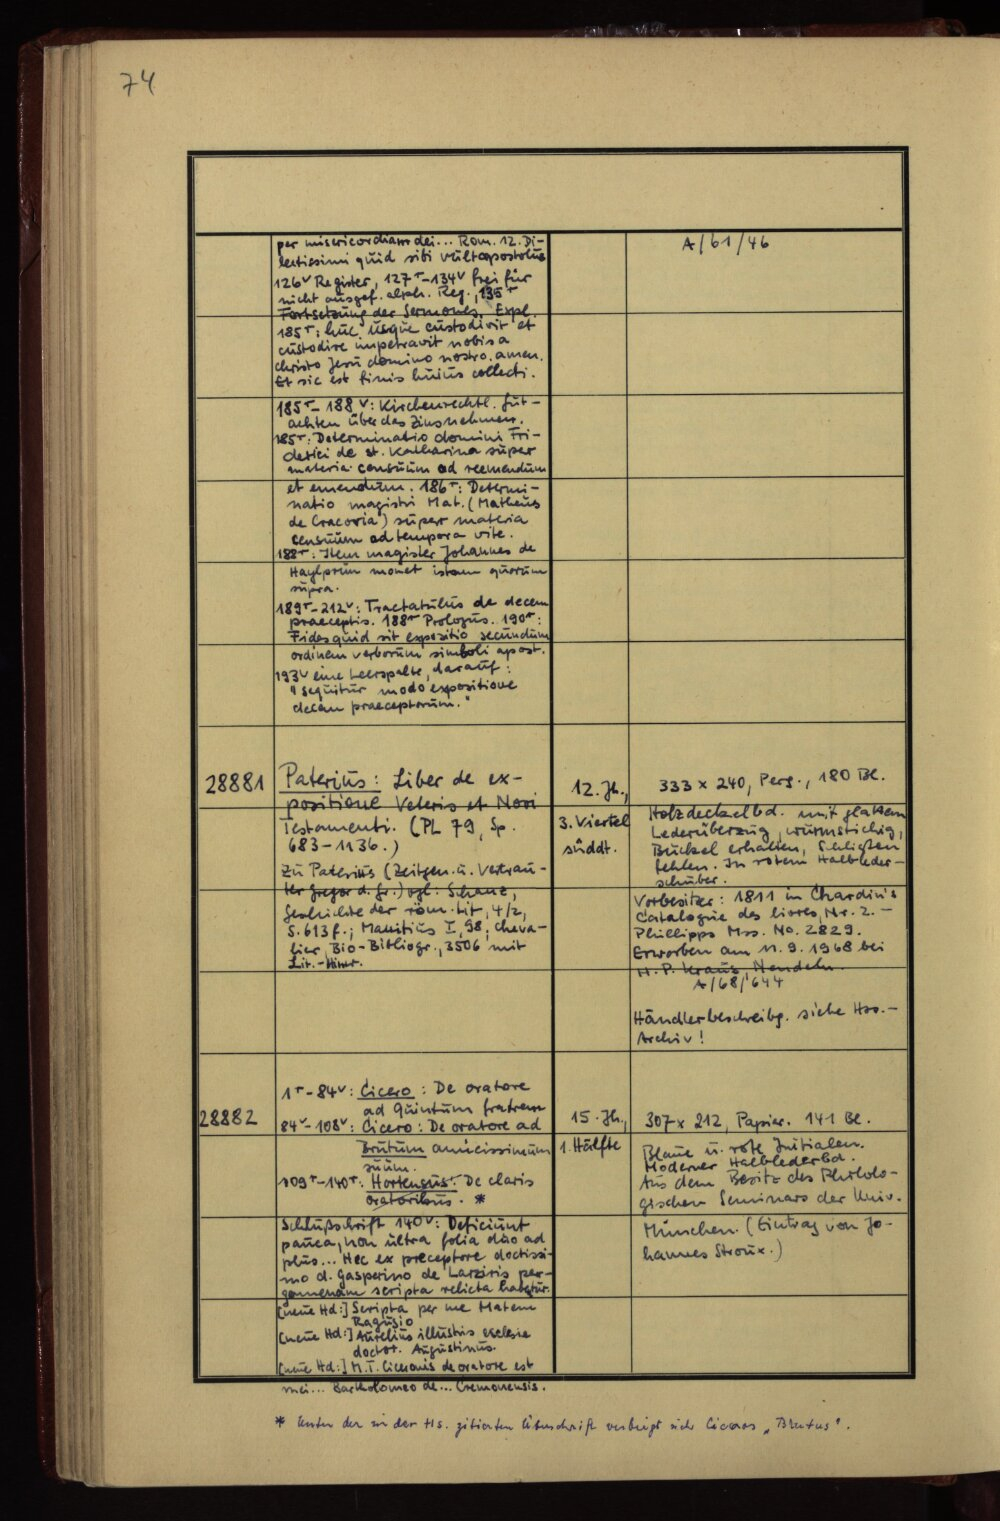 74
per misericordiam dei... Rom. 12. Di-
lectissimi quid sibi vult apostolus
126v Register, 127r-134v frei für
nicht ausgef. alph. Reg., 135r
Fortsetzung der Sermones. Expl.
185r: huc usque custodivit et
custodire impetravit nobis a
christo Jesu domino nostro. amen.
Et sic est finis huius collecti.
185r-188v: Kirchenrechtl. Gut-
achten über das Zinsnehmen.
185r: Determinatio domini Fri-
derici de st. Katharina super
materia censuum ad reemendum
et emendum. 186r: Determi-
natio magistri Mat. (Matheus
de Cracovia) super materia
censuum ad tempora vite.
188r: Item magister Johannes de
Haylprun monet istam quorum
supra.
189r-212v: Tractatulus de decem
praeceptis. 188r Prologus. 190r:
Fides quid sit expositio secundum
ordinem verborum simboli apost.
193v eine Leerspalte, darauf:
"sequitur modo expositione
decem praeceptorum."
A/61/46
28881
Paterius: Liber de ex-
positione Veteris et Novi
Testamenti. (PL 79, Sp.
683-1136.)
Zu Paterius (Zeitgen. u. Vertrau-
ter Gregor d. Gr.) vgl. Schanz,
Geschichte der röm. Lit, 4/2,
S. 613 f.; Manitius I, 98; Cheva-
lier, Bio-Bibliogr., 3506 mit
Lit.-Hinw.
12. Jh.,
3. Viertel
süddt.
333 x 240, Perg., 180 Bl.
Holzdeckelbd. mit glattem
Lederüberzug, wurmstichig,
Buckel erhalten, Schließen
fehlen. In rotem Halbleder-
schuber.
Vorbesitzer: 1811 in Chardin's
Catalogue des livres, Nr. 2. -
Phillipps Mss. No. 2829.
Erworben am 11.9.1968 bei
H. P. Kraus, Nendeln.
A/68/644
Händlerbeschreibg. siehe Hss.-
Archiv!
28882
1r-84v: Cicero: De oratore
ad Quintum fratrem
84v-108v: Cicero: De oratore ad
Brutum amicissimum
suum.
109r-140r: Hortensus: De claris
oratoribus. *
Schlußschrift 140v: Deficiunt
pauca, non ultra folia duo ad
plus... Hec ex preceptore doctissi-
mo d. Gasperino de Larziris per-
gamenam scripta relicta habetur.
[neue Hd:] Scripta per me Matem
Ragusio
[neue Hd:] Aurelius illustris ecclesie
doctor. Augustinus.
[neue Hd:] M.T. Ciceronis de oratore est
mei... Bartholomeo de... Cremonensis.
15. Jh.,
1. Hälfte
307 x 212, Papier. 141 Bl.
Blaue u. rote Initialen.
Moderner Halblederbd.
Aus dem Besitz des Philolo-
gischen Seminars der Univ.
München. (Eintrag von Jo-
hannes Stroux.)
* Unter der in der Hs. zitierten Überschrift verbirgt sich Ciceros „Brutus".